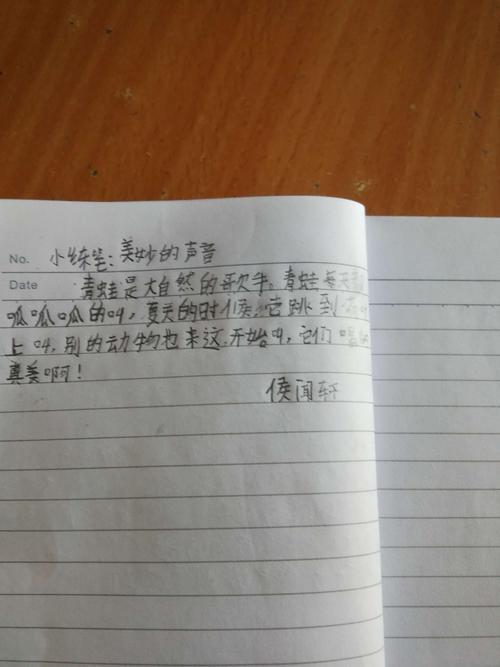 No. 小练笔：美妙的声音
Date 青蛙是大自然的歌手。青蛙每天
呱呱呱的叫，夏天的时候，它跳到荷叶
上叫，别的动物也来这开始叫，它们唱
真美啊！
侯闻轩